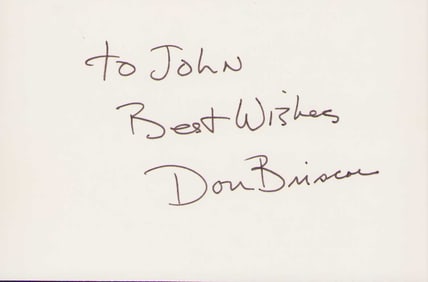 to John
Best Wishes
Don Briscoe